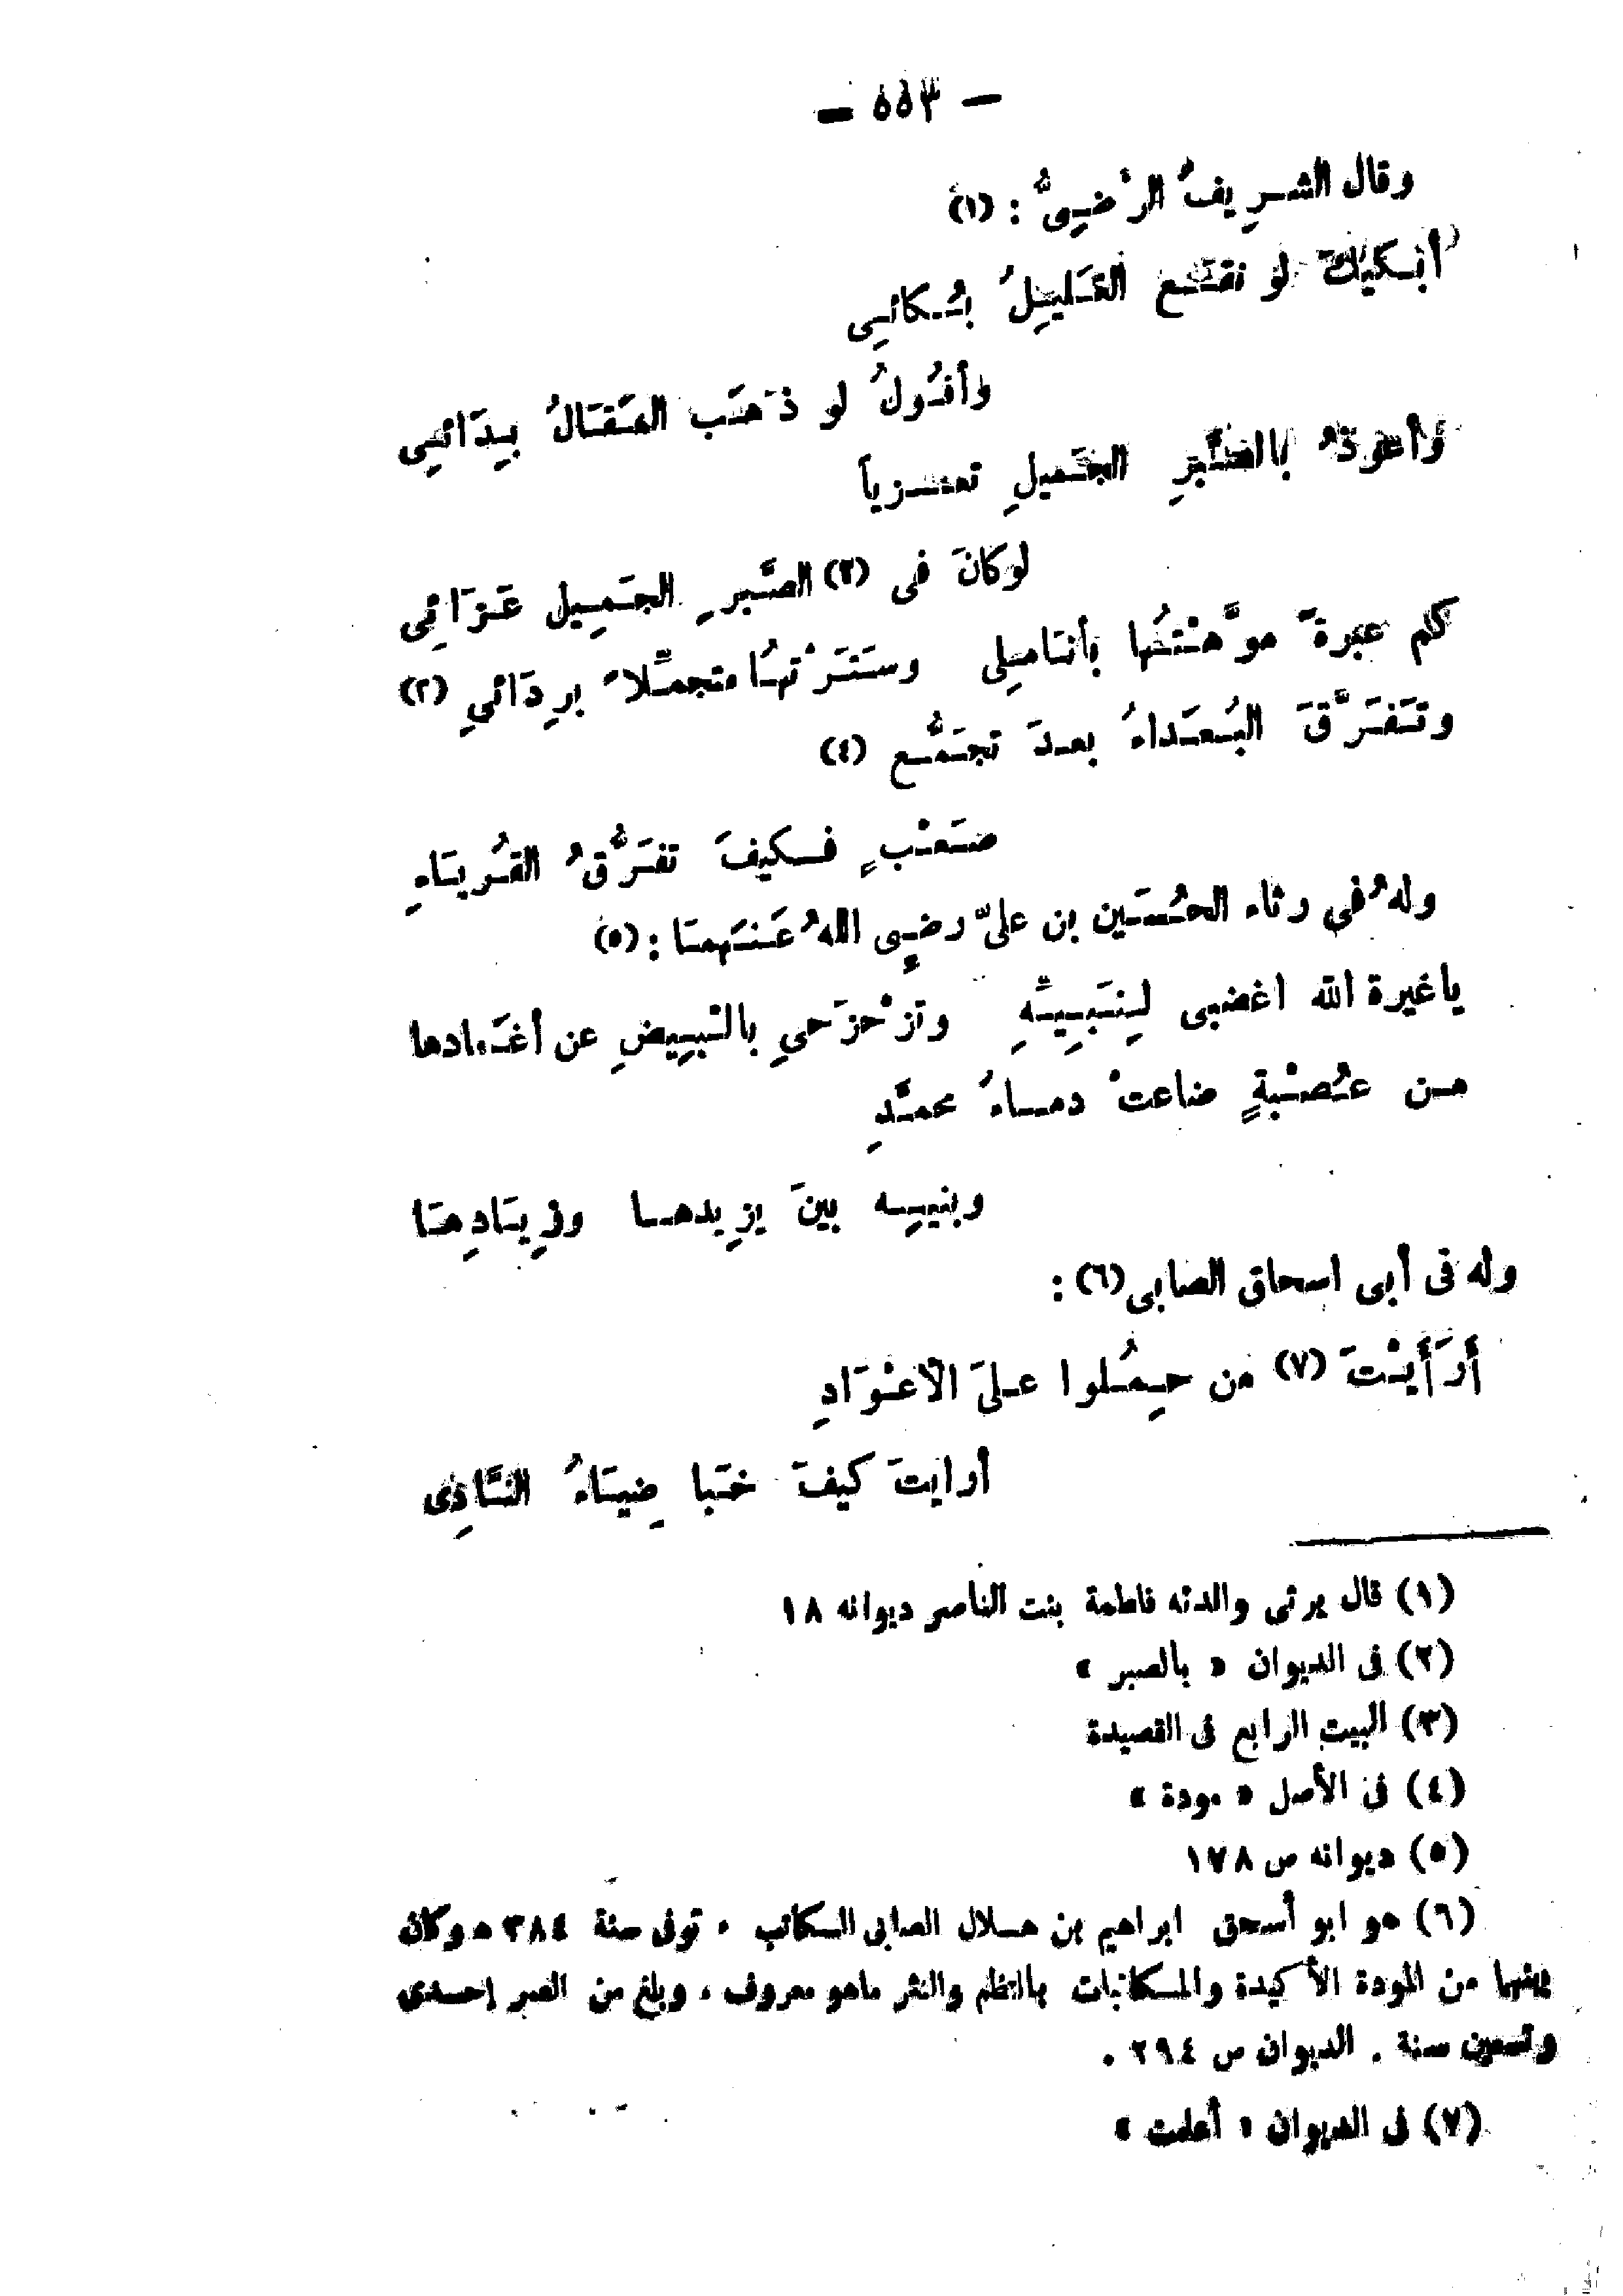 — ٥٥٣ —
وقال الشريفُ الرَّضِىُّ : (١)
أبكيكَ لو نقَعَ الغَليلُ بُكائِى
وأقُولُ لو ذَهَبَ المَقَالُ بِدَائِى
وأعوذُ بالصَّبرِ الجَميلِ تعزياً
لو كانَ فى (٢) الصَّبرِ الجَمِيل عَزَائِى
كم عبرةً موَّهْتُها بأنَامِلِى وسَتَرْتُهَا متجمِّلاً بِردَائيِ (٣)
وتَفَرَّقَ البُعَداءُ بعدَ تجَمُّع (٤)
صَعْبٍ فكيفَ تفَرُّقُ القُربَاءِ
ولهُ فى رثاء الحُسَين بن علىّ رضِى اللهُ عَنَهمَا : (٥)
ياغيرة الله اغضبى لِنَبِيِّهِ وتزَحْزَحىِ بالبِيضِ عن أغمَادها
من عُصْبةٍ ضاعتْ دماءُ محمَّدِ
وبنيهِ بينَ يزِيدها وزِيَادِهَا
وله فى أبى اسحاق الصابى (٦) :
أَرَأَيْتَ (٧) من حِمُلوا علىَ الأعْوَادِ
أرايتَ كيفَ خَبا ضِيَاءُ النَّادِى
(١) قال يرثى والدته فاطمة بنت الناصر ديوانه ١٨
(٢) فى الديوان « بالصبر »
(٣) البيت الرابع فى القصيدة
(٤) فى الأصل « مودة »
(٥) ديوانه ص ١٧٨
(٦) هو ابو أسحق ابراهيم بن هلال الصابى الكاتب ، توفى سنة ٣٨٤ ه وكان
بينهما من المودة الأكيدة والمكاتبات بالنظم والنثر ماهو معروف ، وبلغ من العمر إحدى
وتسعين سنة . الديوان ص ٢٩٤ .
(٧) فى الديوان « أعلمت »